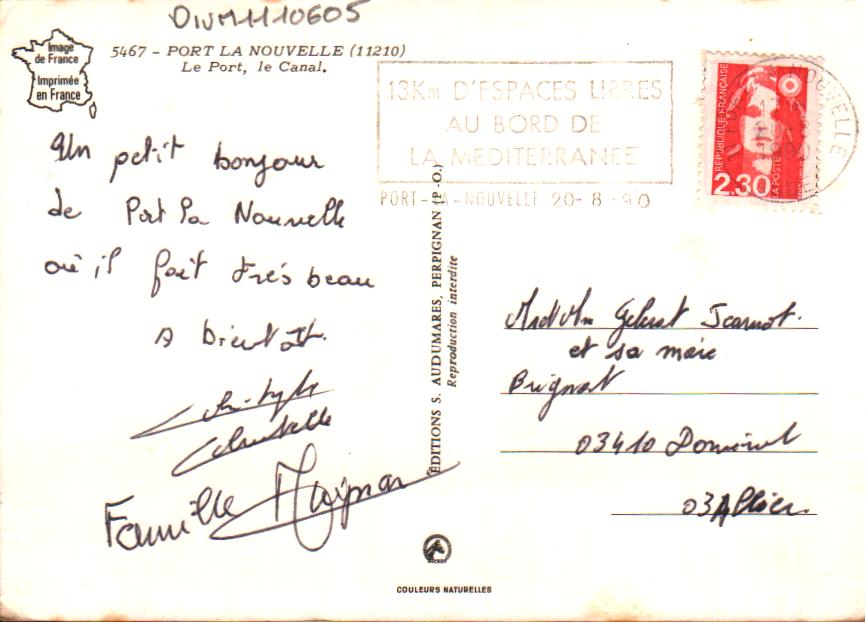 DIVM1110605
Image
de France
Imprimée
en France
5467 - PORT LA NOUVELLE (11210)
Le Port, le Canal.
13Km D'ESPACES LIBRES
AU BORD DE
LA MEDITERRANEE
PORT-LA-NOUVELLE 20-8-90
REPUBLIQUE FRANÇAISE
2.30
LA POSTE
Un petit bonjour
de Port La Nouvelle
où il fait très beau
a bientot.
Famille
EDITIONS S. AUDUMARES, PERPIGNAN (P.-O.)
Reproduction interdite
et sa mère
03410
03 Allier.
COULEURS NATURELLES